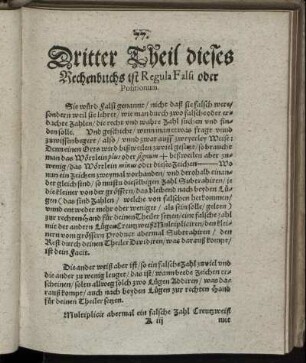 77.
Dritter Theil dieses
Rechenbuchs ist Regula Falsi oder
Positionum.
Sie würd Falsi genannt / nicht daß sie falsch were /
sondern weil sie lehret / wie man durch zwo falsch oder er-
dichte Zahlen / die recht und wahre Zahl suchen und fin-
den solle. Und geschicht / wenn man etwas frage vmb
zu wissen begert / also / vnd zwar auff zweyerley Weise:
man das Wörtlein plus oder Zeichen + bisweilen aber zu-
wenig / das Wörtlein minus oder dieses Zeichen — Wo
nun ein Zeichen zweymal vorhanden / und derohalb eina-
der gleich sind / so mustu die selbigen Zahl Subtrahiren / je
die kleiner von der grössern / das bleibend nach beyden Lü-
gen / (das sind Zahlen / welche von falschen herkommen /
vnd entweder mehr oder weniger / als sein solle / geben)
zur rechten Hand für deinen Theiler setzen / eine falsche Zahl
mit der andern Lügen Creutzweiß Multipliciren / den klei-
nern vom grössern Product abermal Subtrahiren / den
Rest durch deinen Theiler Dividiren / was daraus kompt /
ist dein Facit.
Die ander weiß aber ist / so ein falsche Zahl zuviel vnd
die ander zu wenig leuget / das ist / wann beede Zeichen er-
scheinen / solen allweg solch zwo Lügen Addiren / was dar-
raus kompt / auch nach beyden Lügen zur rechten Hand
für deinen Theiler setzen.
Multiplicir abermal ein falsche Zahl Creutzweiß
K iij mit